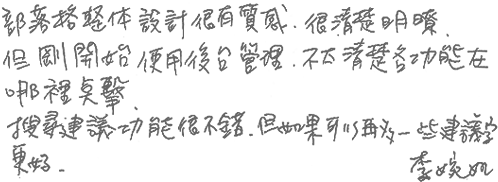 部落格整体設計很有質感.很清楚明瞭.
但剛開始使用後台管理.不太清楚各功能在
哪裡点擊.
搜尋建議功能很不錯.但如果可以再多一些建議会
更好.
李婉如